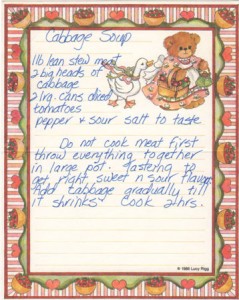 Cabbage Soup
1 lb lean stew meat
2 big heads of
cabbage
2 lrg. cans diced
tomatoes
pepper & sour salt to taste
Do not cook meat first
throw everything together
in large pot. tastering to
get right sweet n sour flavor.
Add cabbage gradually till
it shrinks. Cook 2 hrs.
© 1986 Lucy Rigg